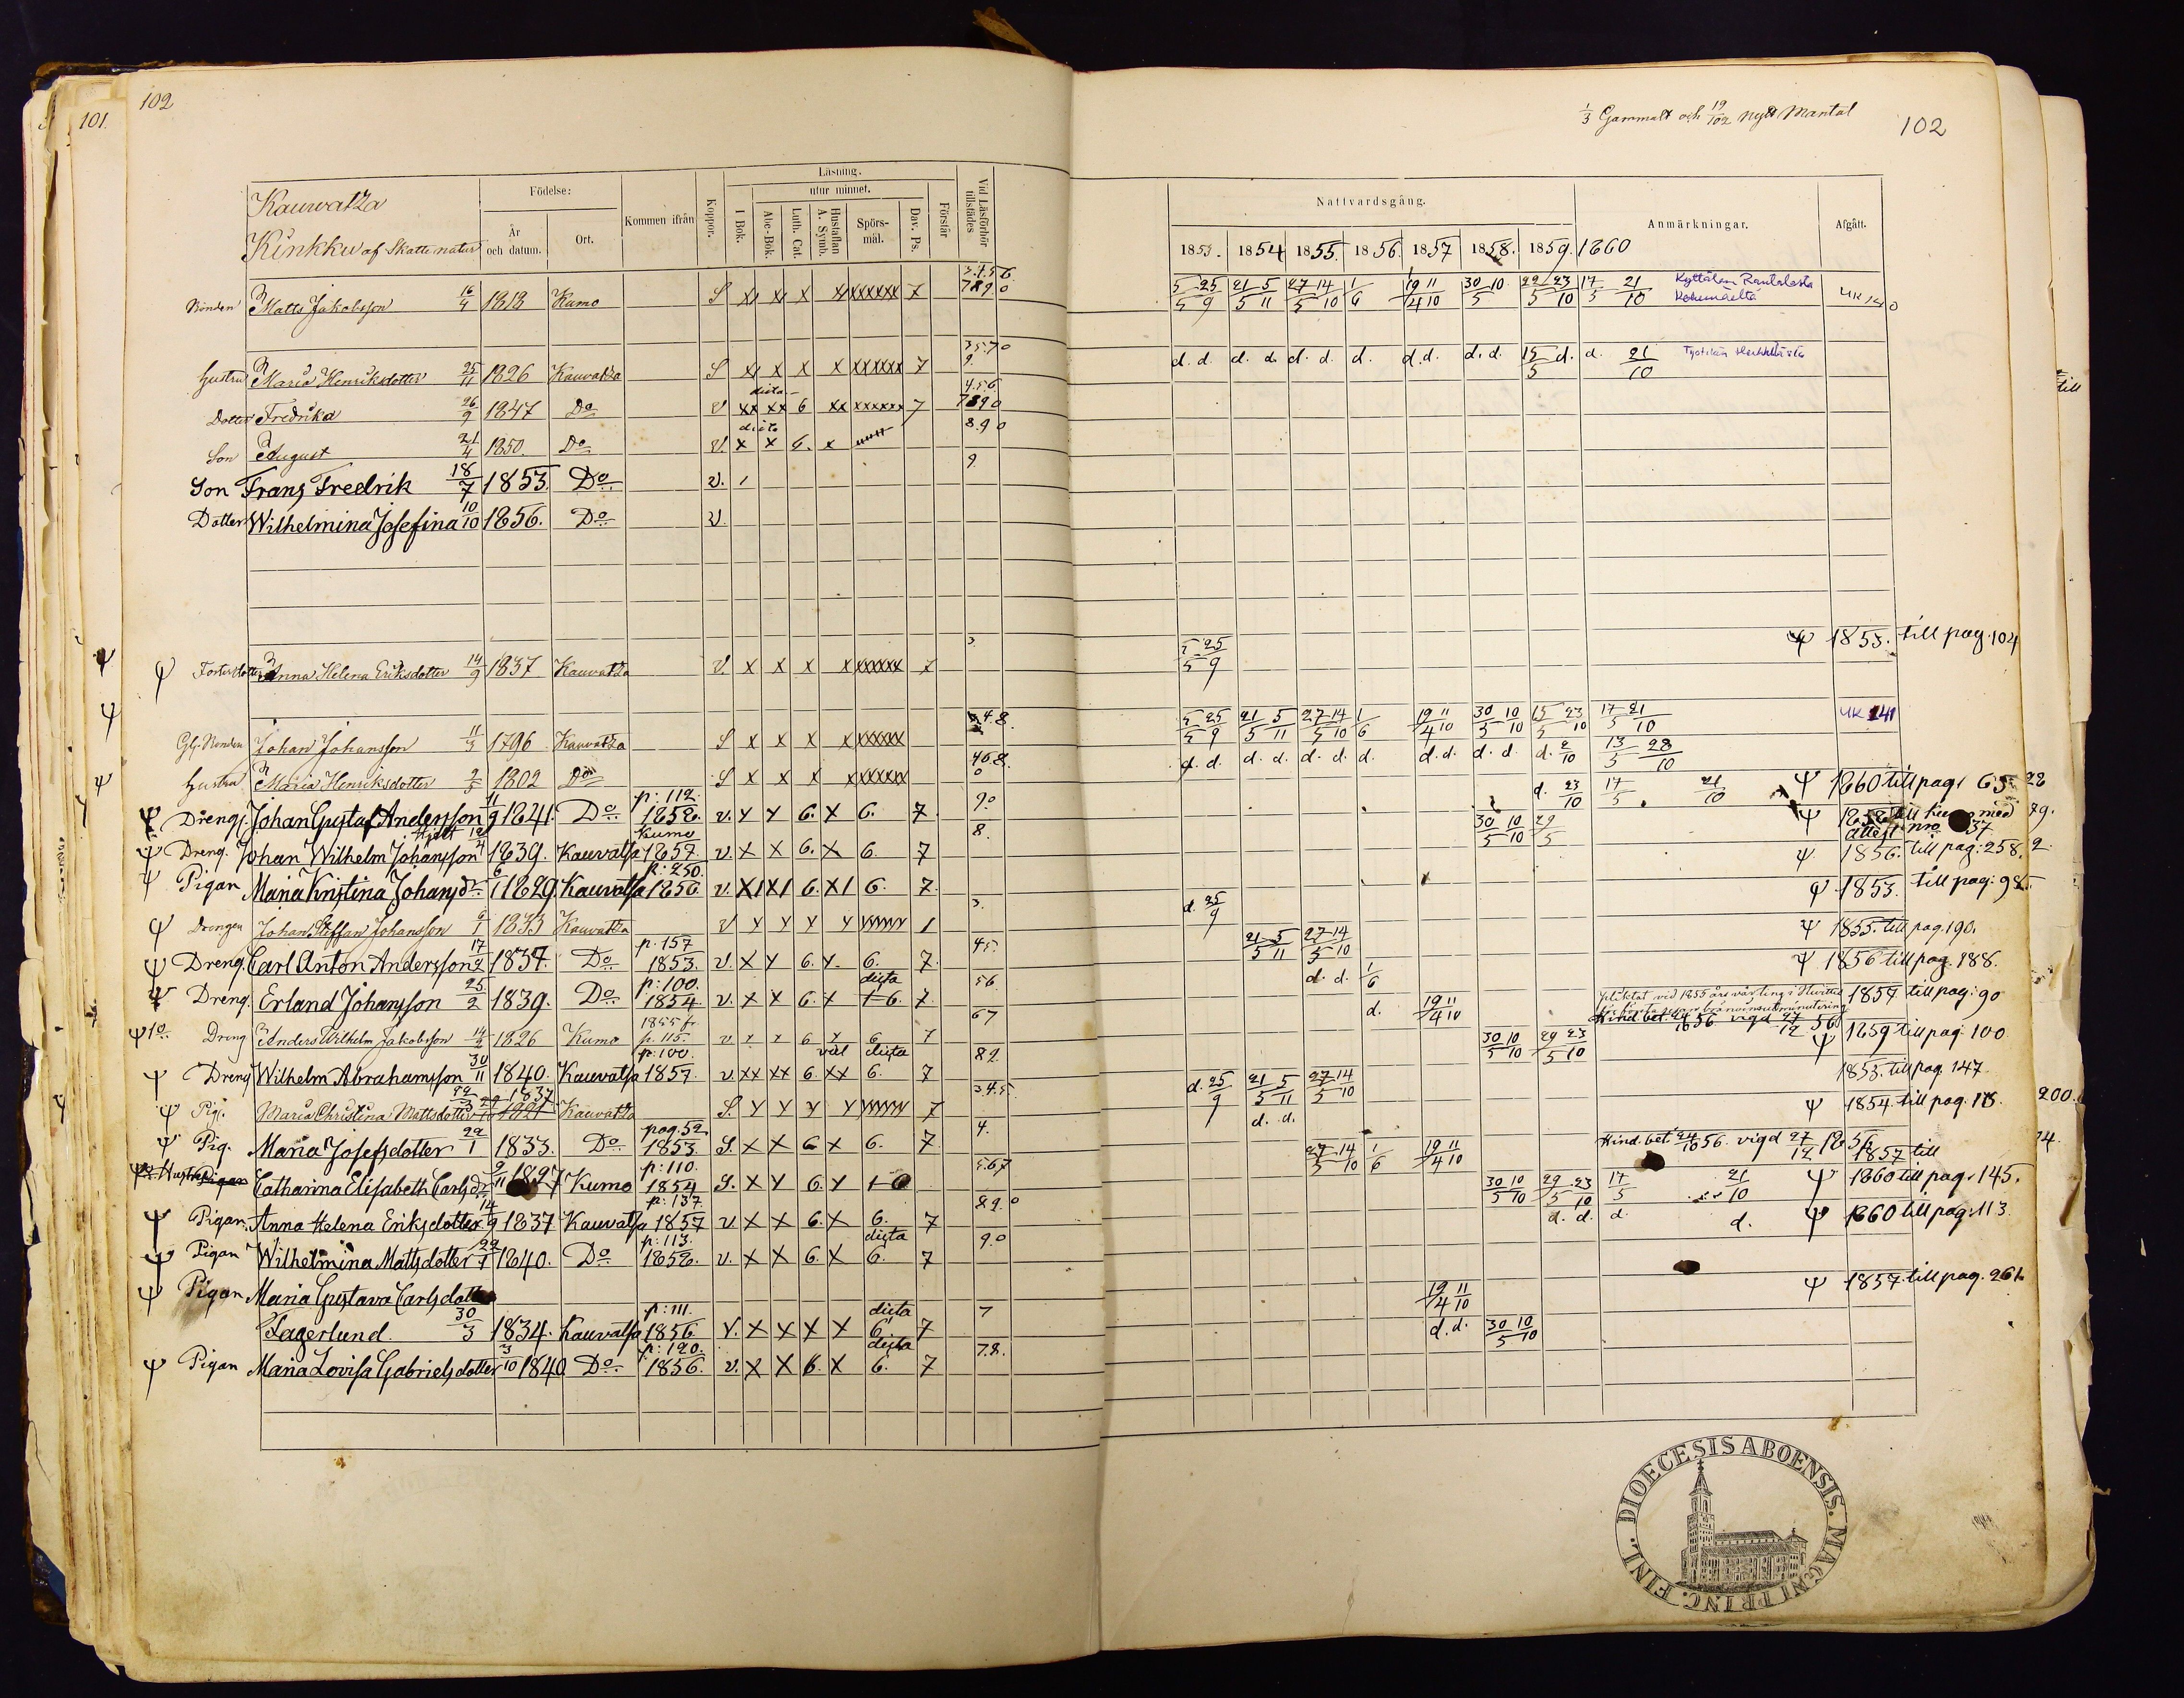 102
101.
1/3 Gammalt och 19/102 nytt Mantal
102
Kauwatza
Kinkku af Skatte natur
Födelse:
År och datum.
Ort.
Kommen ifrån
Koppor.
Läsning.
I Bok.
utur minnet.
Abc-Bok.
Luth. Cat.
Hustaflan A. Symb.
Spörs-mål.
Dav. Ps.
Förstår
Vid Läsförhör tillstädes
Nattvardsgång.
1853. 1854 1855. 1856. 1857 1858. 1859. 1860
Anmärkningar.
Afgått.
Bonden Matts Jakobsson 16/4 1818 Kumo S x x x x xxxxxx 7 7890 5 25/5 9 21 5/5 11 27 14/5 10 1/6 19 11/4 10 30 10/5 22 23/5 10 17/5 21/10
Hustru Maria Henriksdotter 25/11 1826 Kauvatza S x x x x xxxxxx 7 9. d. d. d. d. d. d. d. d. d. d. d. 15/5 d. d. 21/10
Dotter Fredrika 26/9 1847 Do V xx xx 6 xx xxxxxx 7 7890
Son August 21/4 1850. Do V. x x 6. x 8.90
Son Frans Fredrik 18/7 1853. Do v. 1 9
Dotter Wilhelmina Josefina 10/10 1856. Do v.
Fosterdotter Anna Helena Eriksdotter 14/9 1837 Kauvatza V. x x x x xxxxxx 7 3 5 25/5 9 1853. till pag. 104
Johan Johansson 11/3 1796 Kauvatza S x x x x xxxxxx 4.8. 5 25/5 9 21 5/5 11 27 14/5 10 1/6 19 11/4 10 30 10/5 10 15 23/5 10 17 21/5 10 UK 141
Hustru Maria Henriksdotter 2/3 1802 Do S x x x xxxxxx d. d. d. d. d. d. d. d. d. d. d. d. 2/10 13 28/5 10
Drengs. Johan Gustaf Andersson 11/9 1841. Do p: 112. 1858. v. x x 6. x 6. 7 9.0 d. 23/10 17/5 21/10 1860 till pag. 65.
Dreng. Johan Wilhelm Johansson 12/4 1839. Kauvatsa Kumo 1857 v. x x 6. x 6. 7 8. 30 10/5 10 29/5
Pigan Maria Kristina Johansdr 6/1 1829. Kauvatsa p: 250. 1856. v. x1 x1 6. x1 6. 7. 1856. till pag: 258.
Drengen Johan Steffan Johansson 1833 Kauvatza V x x x x 1 3. d. 25/9 1853. till pag: 98.
Dreng. Carl Anton Andersson 17/2 1837. Do p. 157 1853. v. x x 6. x. 6. 7. 45. 21 5/5 11 27 14/5 10 1855. till pag. 190.
Dreng. Erland Johansson 25/2 1839. Do p: 100. 1854 v. x x 6. x dicta 6. 7. 56. d. d. 1/6 1856 till pag. 188.
Dreng Anders Wilhelm Jakobsson 14/4 1826 Kumo 1855 fr. p. 115. v x x 6 x 6 7 67 d. 19 11/4 10 Hind. bet. 1856 vigd 27/12 56 1857 till pag: 90
Dreng Wilhelm Abrahamsson 30/11 1840. Kauvatsa p: 100. 1857. v. xx xx 6. xx dicta 6. 7 89. 30 10/5 10 29 23/5 10 1859 till pag: 100
Pig. Maria Christina Mattsdotter 1821 1837 Kauvatza S. x x x x 7 3.4.5 d. 25/9 21 5/5 11 27 14/5 10 1853. till pag. 147.
Pig. Maria Josefsdotter 22/1 1833. Do pag. 52. 1853. S. x x 6 x 6. 7. 4. d. d. 1854. till pag. 118.
Hustru Pigan Catharina Elisabeth Carlsdr 9/11 Kumo p: 110. 1854 S. x x 6. x 5.6.7 27 14/5 10 1/6 19 11/4 10 Hind. bet. 24/10 56. vigd 27/12 1856 1857 till
Pigan. Anna Helena Eriksdotter 14/9 1837 Kauvatsa p: 137. 1857 v. x x 6. x 6. 7 89.0 30 10/5 10 29 23/5 10 17/5 21/10 1860 till pag. 145.
Pigan Wilhelmina Mattsdotter 1840. Do p: 113. 1858. v. x x 6. x dicta 6. 7 9.0 d. d. d. d. 1860 till pag: 113
Pigan Maria Gustava Carlsdotter
Fagerlund. 30/3 1834. Kauvatsa p: 111. 1856 v. x x x x dicta 6. 7 7 19 11/4 10 1857. till pag. 261.
Pigan Maria Lovisa Gabrielsdotter 3/10 1840 Do p: 120. 1856. v. x x 6. x dicta 6. 7 7.8. d. d. 30 10/5 10
till
200.
DIOECESIS ABOENSIS. MAGNI PRINC. FINL.